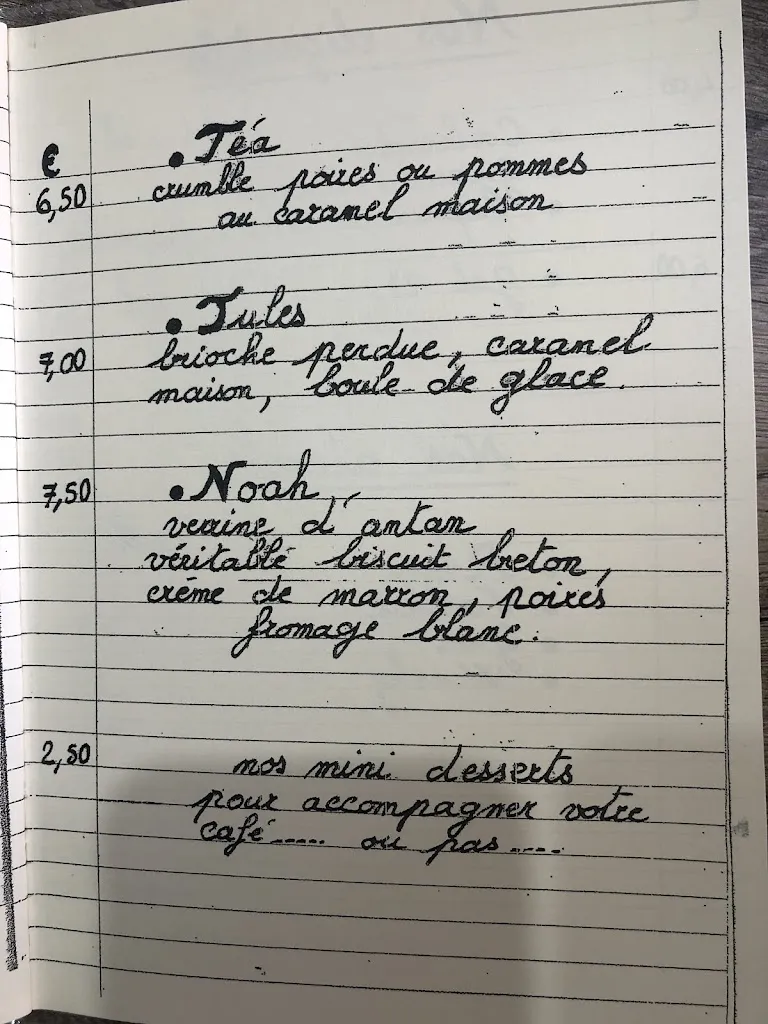 €
• Téa
6,50 crumble poires ou pommes
au caramel maison
• Jules
7,00 brioche perdue, caramel
maison, boule de glace.
7,50 • Noah
verrine d'antan
véritable biscuit breton,
crème de marron, poires
fromage blanc.
2,50 nos mini desserts
pour accompagner votre
café..... ou pas....